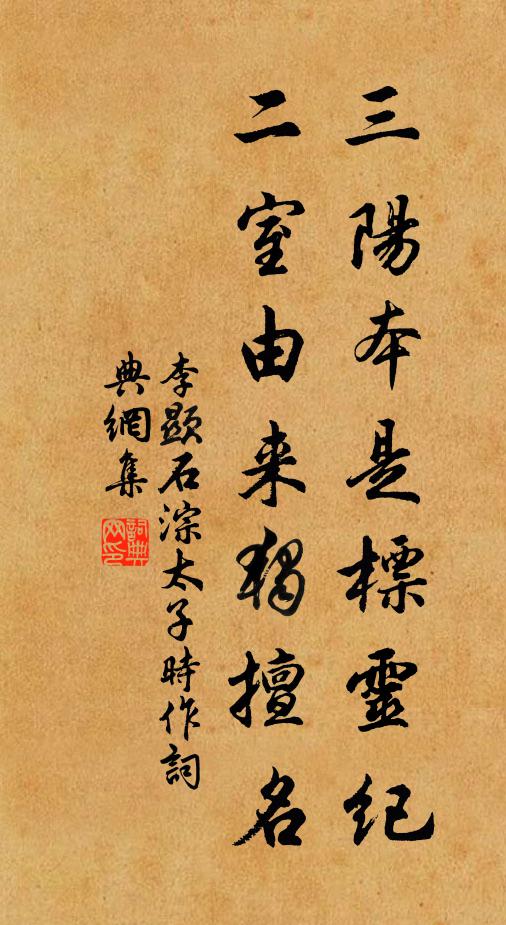 三陽本是標靈紀
二室由来獨擅名
李顯石淙太子時作詞
典網集
詞典
网印